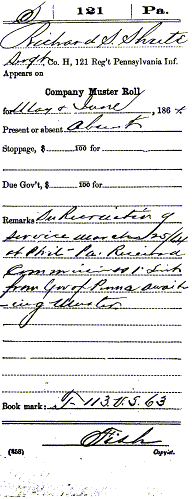 S 121 Pa.
Richard S.
Sergt, Co. H, 121 Reg't Pennsylvania Inf.
Appears on
Company Muster Roll
for May & June, 1864
Present or absent absent
Stoppage, $ 100 for
Due Gov't, $ 100 for
Remarks: of
service
at Phil Pa. Received
Commission as 1" Lieut
from Gov of Penna await
ing Muster
Book mark: 113. U.S. 63
Fish
(858) Copyist.